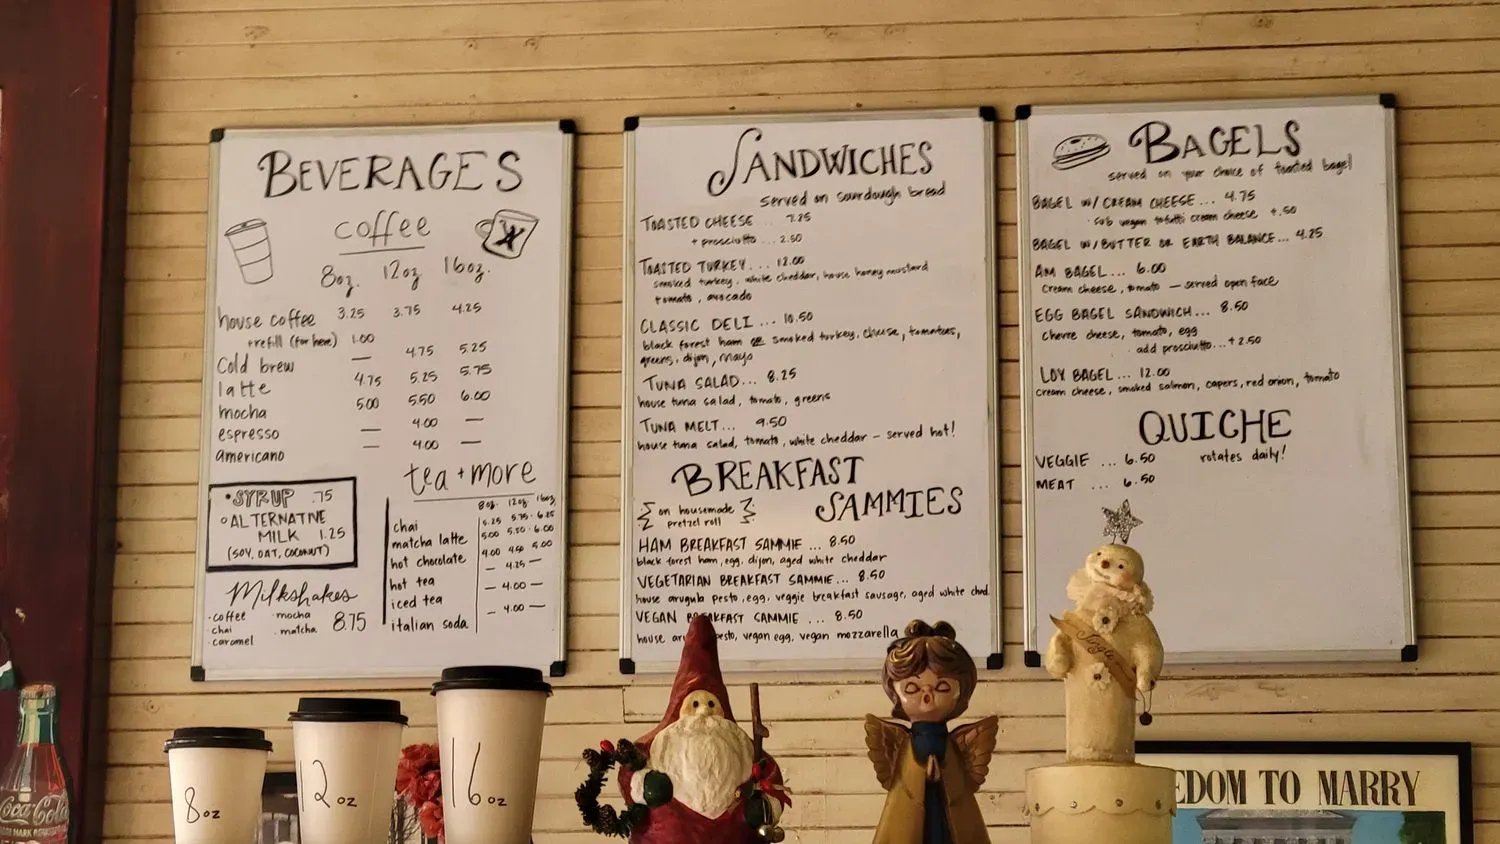 BEVERAGES
coffee
8oz. 12oz 16oz.
house coffee 3.25 3.75 4.25
+refill (for here) 1.00
Cold brew — 4.75 5.25
latte 4.75 5.25 5.75
mocha 5.00 5.50 6.00
espresso — 4.00 —
americano — 4.00 —
• SYRUP .75
ALTERNATIVE
MILK 1.25
(SOY, OAT, COCONUT)
tea + more
8oz. 12oz. 16oz.
chai 5.25 5.75 6.25
matcha latte 5.00 5.50 6.00
hot chocolate 4.00 4.50 5.00
hot tea — 4.25 —
iced tea — 4.00 —
italian soda — 4.00 —
Milkshakes
• coffee mocha
chai • matcha 8.75
• caramel
SANDWICHES
served on sourdough bread
TOASTED CHEESE ... 7.25
+ prosciutto ... 2.50
TOASTED TURKEY... 12.00
smoked turkey, white cheddar, house honey mustard
tomato, avocado
CLASSIC DELI ... 10.50
black forest ham or smoked turkey, cheese, tomatoes,
greens, dijon, mayo
TUNA SALAD... 8.25
house tuna salad, tomato, greens
TUNA MELT... 9.50
house tuna salad, tomato, white cheddar - served hot!
BREAKFAST
SAMMIES
on housemade
pretzel roll
HAM BREAKFAST SAMMIE ... 8.50
black forest ham, egg, dijon, aged white cheddar
VEGETARIAN BREAKFAST SAMMIE... 8.50
house arugula pesto, egg, veggie breakfast sausage, aged white ched.
VEGAN BREAKFAST SAMMIE ... 8.50
house aru pesto, vegan egg, vegan mozzarella
BAGELS
served on your choice of toasted bagel
BAGEL W/ CREAM CHEESE ... 4.75
• sub vegan tofutti cream cheese +.50
BAGEL W/ BUTTER OR EARTH BALANCE... 4.25
AM BAGEL... 6.00
cream cheese, tomato — served open face
EGG BAGEL SANDWICH... 8.50
chevre cheese, tomato, egg
add prosciutto...+2.50
LOX BAGEL... 12.00
cream cheese, smoked salmon, capers, red onion, tomato
QUICHE
VEGGIE ... 6.50 rotates daily!
MEAT .... 6.50
8oz
12oz
16oz
Coca-Cola
EDOM TO MARRY